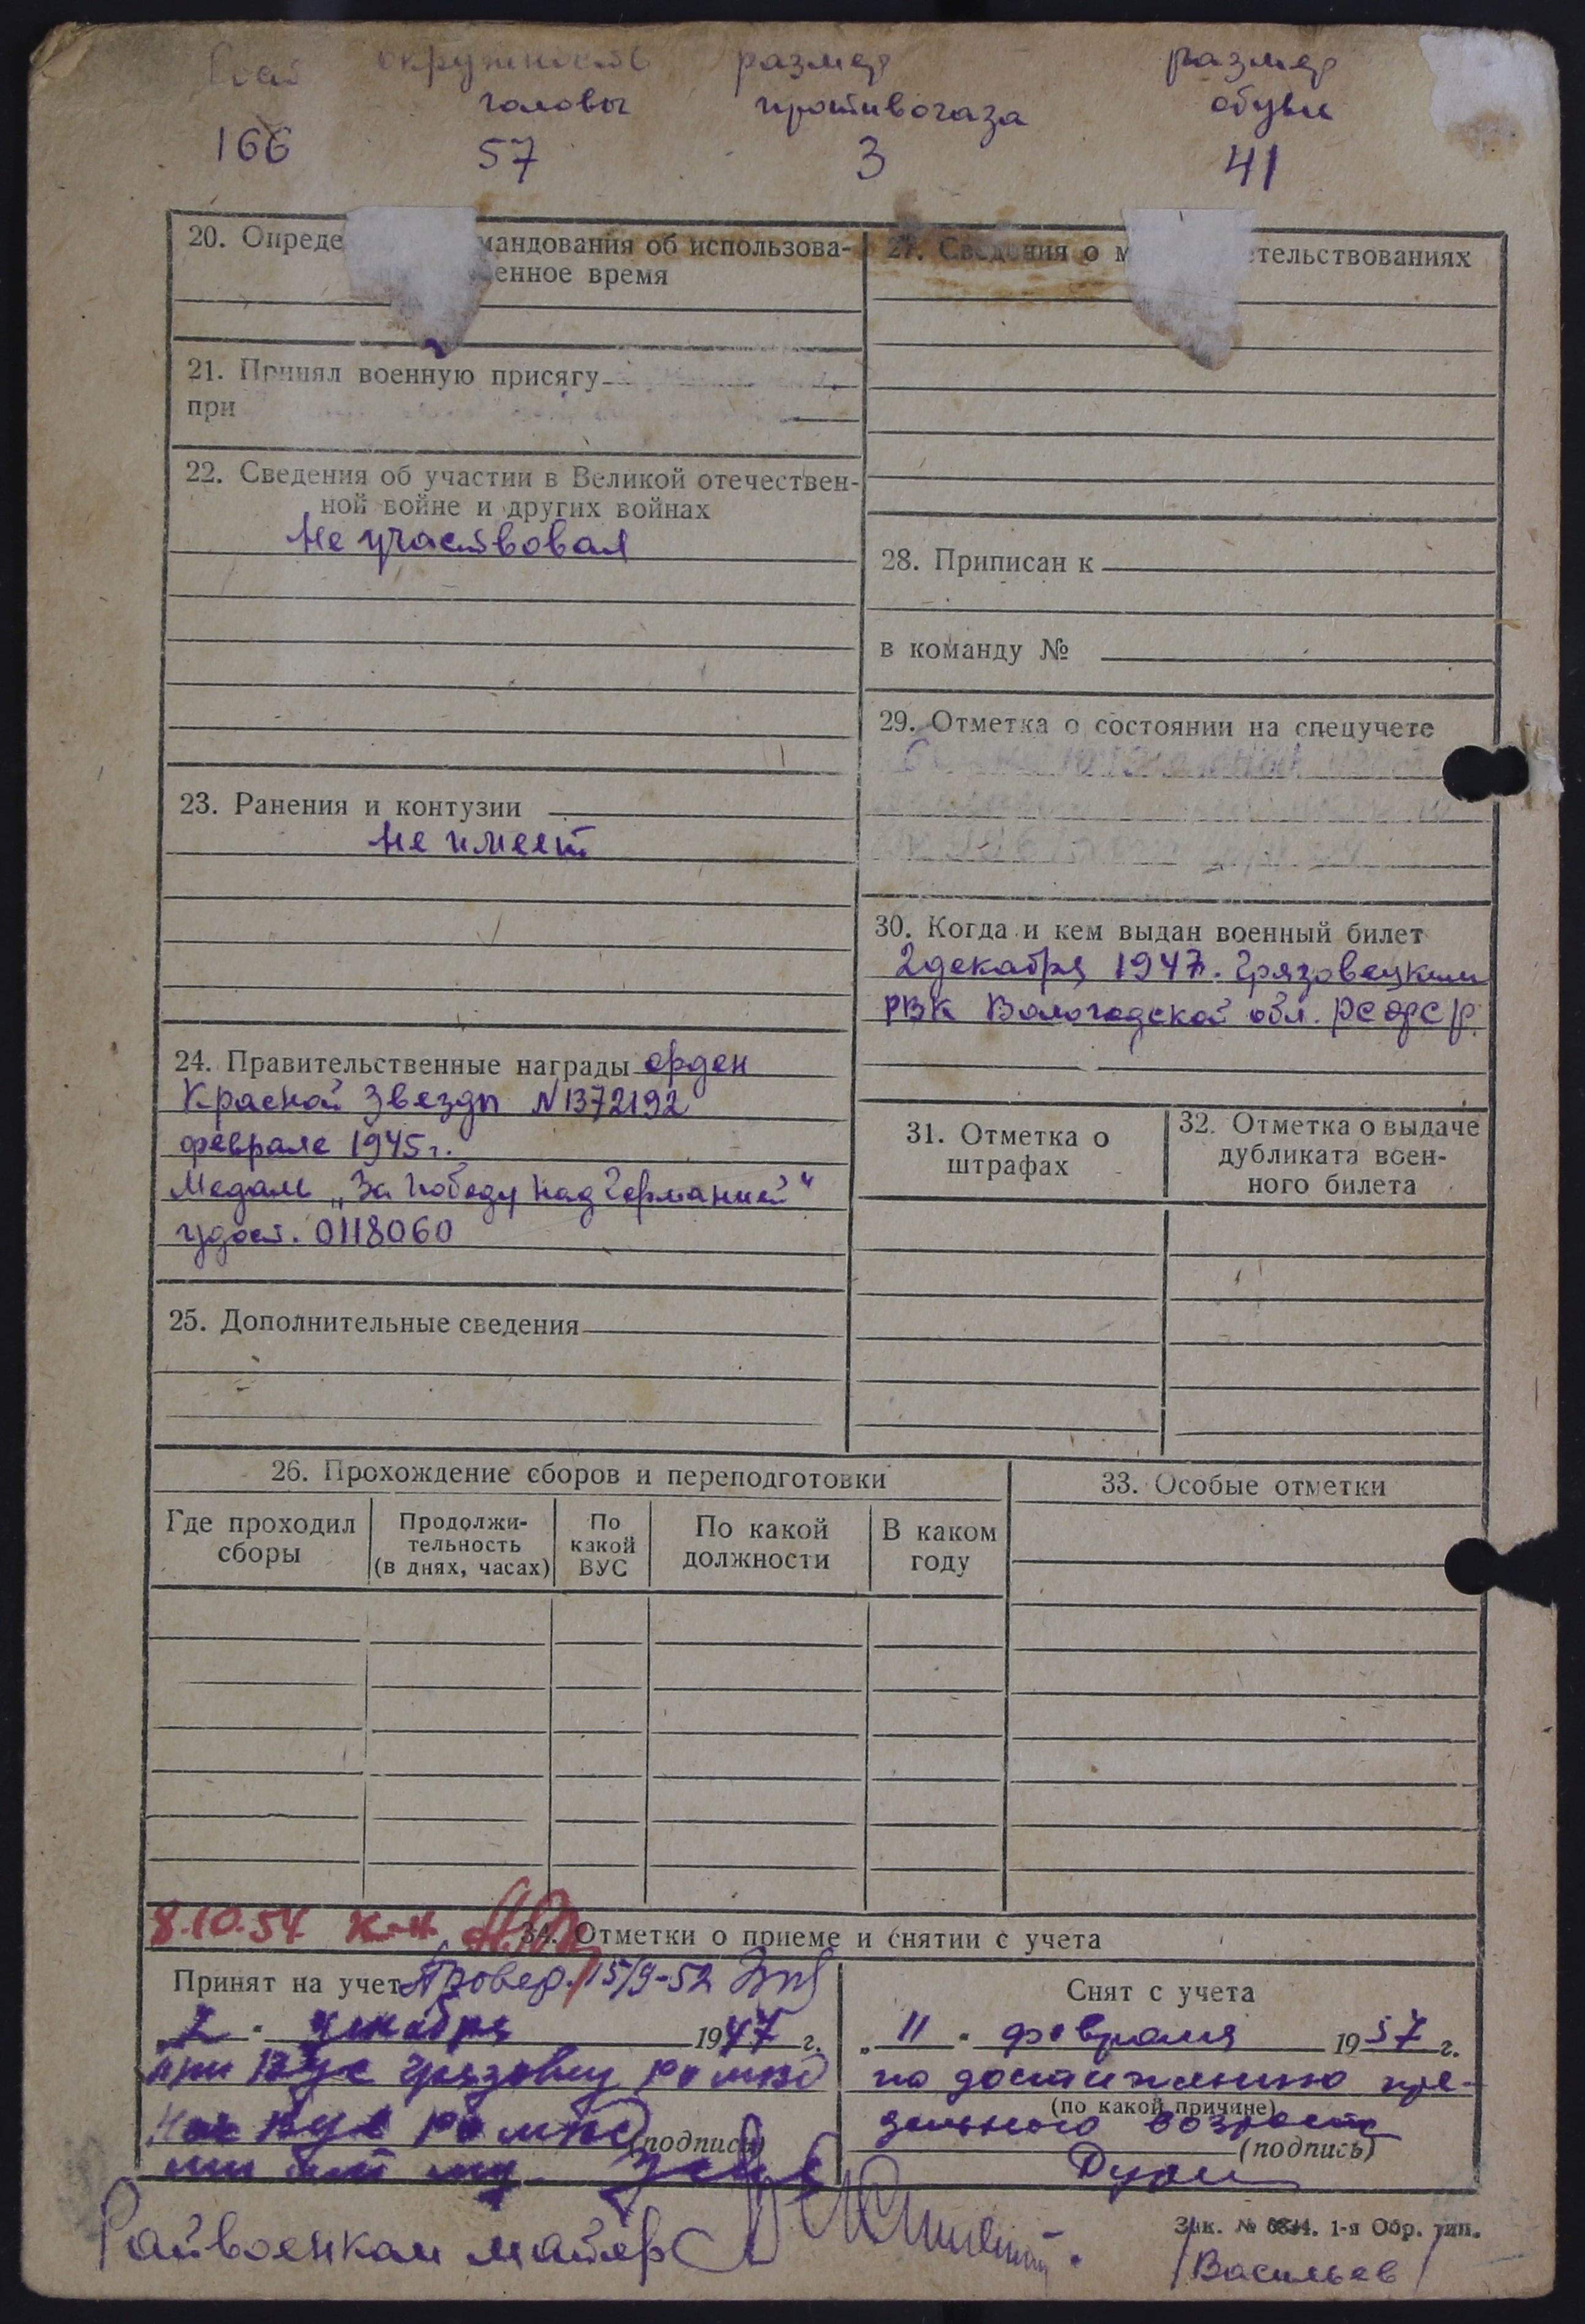 Рост окружность размер размер
головы противогаза обуви
166 57 3 41
20. Опреде мандования об использова-
енное время
21. Принял военную присягу
при
22. Сведения об участии в Великой отечествен-
ной войне и других войнах
Не участвовал
23. Ранения и контузии
Не имеет
24. Правительственные награды орден
Красной Звезды №1372192
феврале 1945 г.
Медаль „За победу над Германией"
удост. 0118060
25. Дополнительные сведения
27. Сведения о м етельствованиях
28. Приписан к
в команду №
29. Отметка о состоянии на спецучете
30. Когда и кем выдан военный билет
2 декабря 1947. Грязовецким
РВК Вологодской обл. РСФСР.
31. Отметка о
штрафах
32. Отметка о выдаче
дубликата воен-
ного билета
26. Прохождение сборов и переподготовки
Где проходил
сборы
Продолжи-
тельность
(в днях, часах)
По
какой
ВУС
По какой
должности
В каком
году
33. Особые отметки
8.10.54 к-н
34. Отметки о приеме и снятии с учета
Принят на учет Провер. 15/9-52
„2" декабря 1947 г.
при ВУС Грязовец
(подпись)
Снят с учета
„11" февраля 1957 г.
по достижению пре-
(по какой причине)
дельного возраста
(подпись)
Райвоенком майор
Зак. № 1-я Обр. тип.
/Васильев/